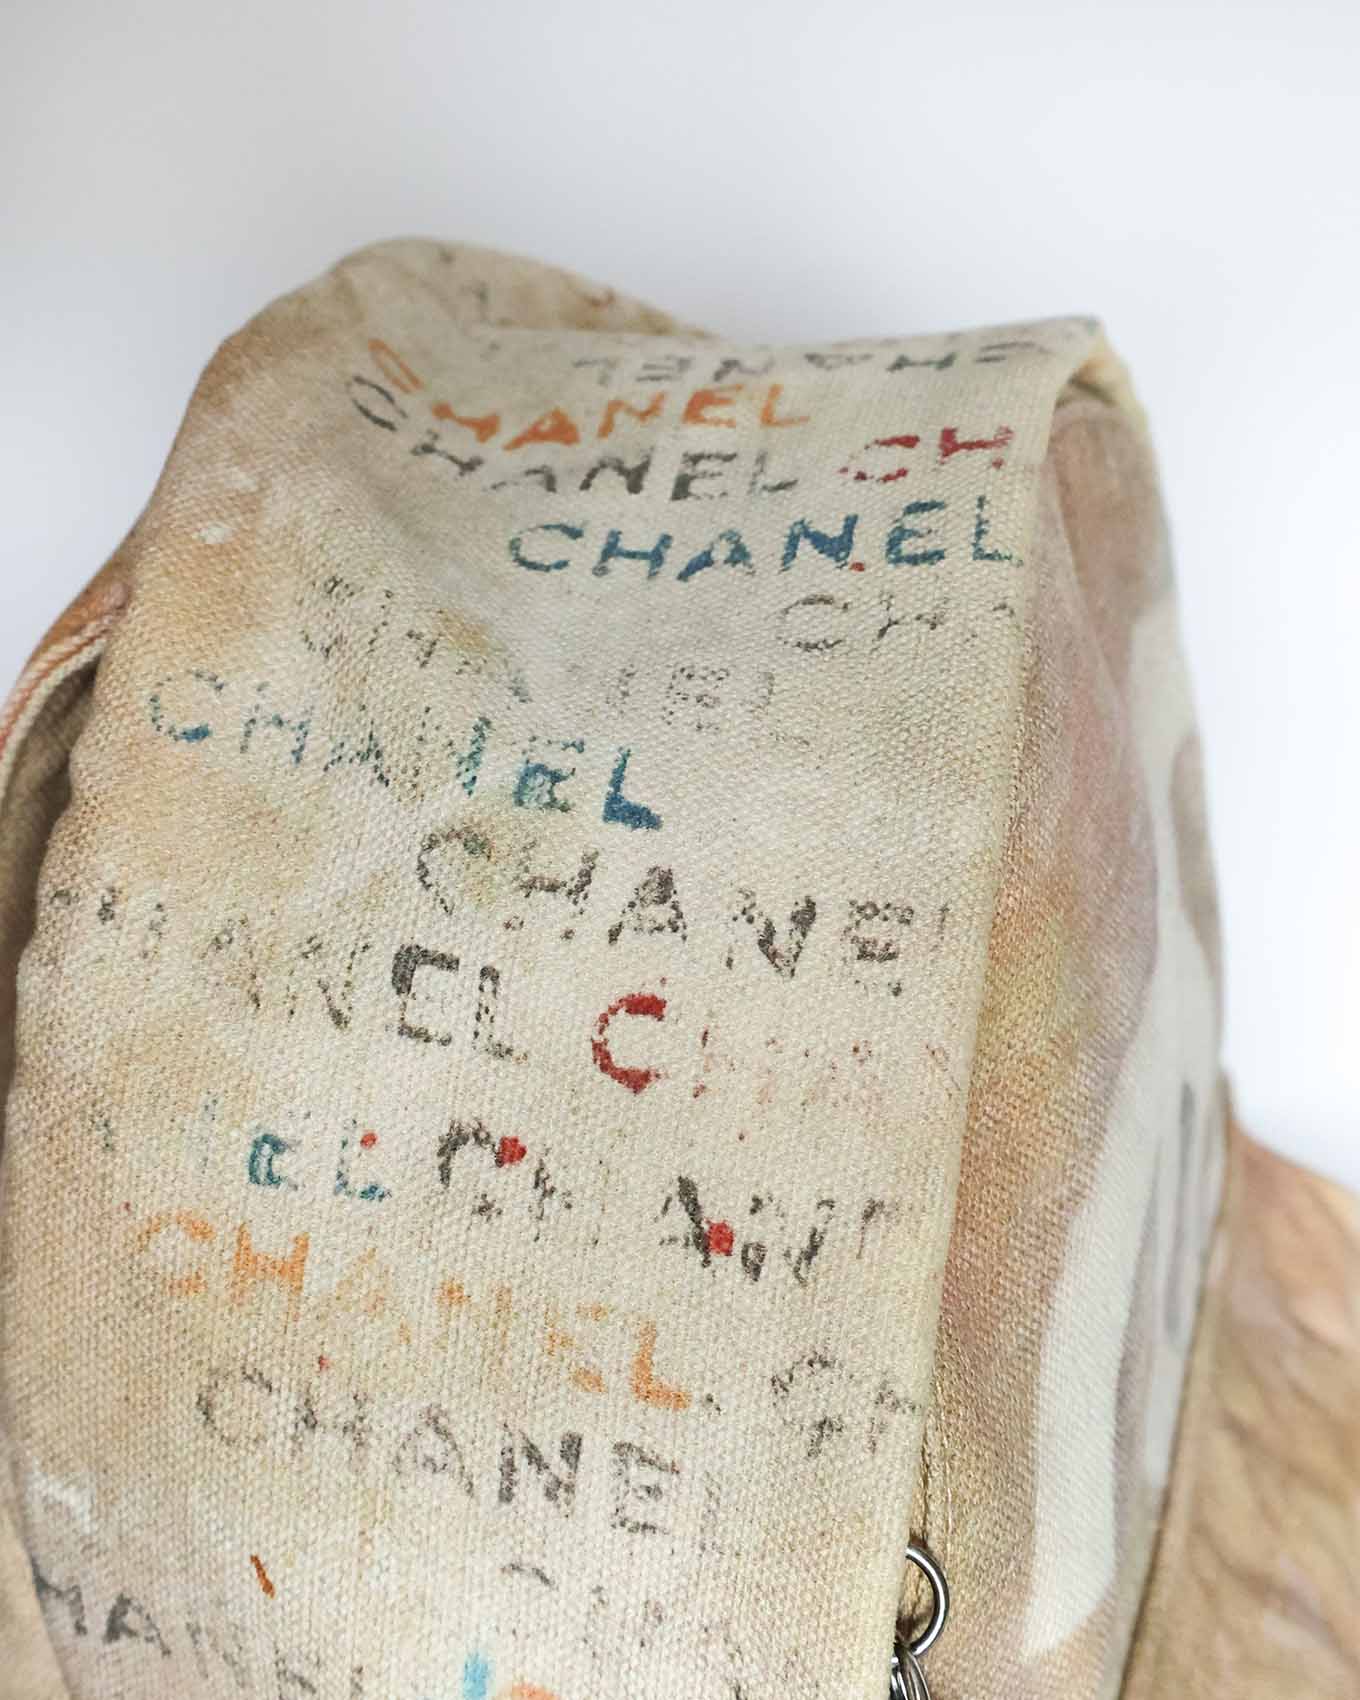 CHANEL
CHANEL
CHANEL CH
CHANEL
CHA
CHANEL
CHANEL
CHANEL
HANEL C
EL
CHANEL
CH
CHANEL
HAN